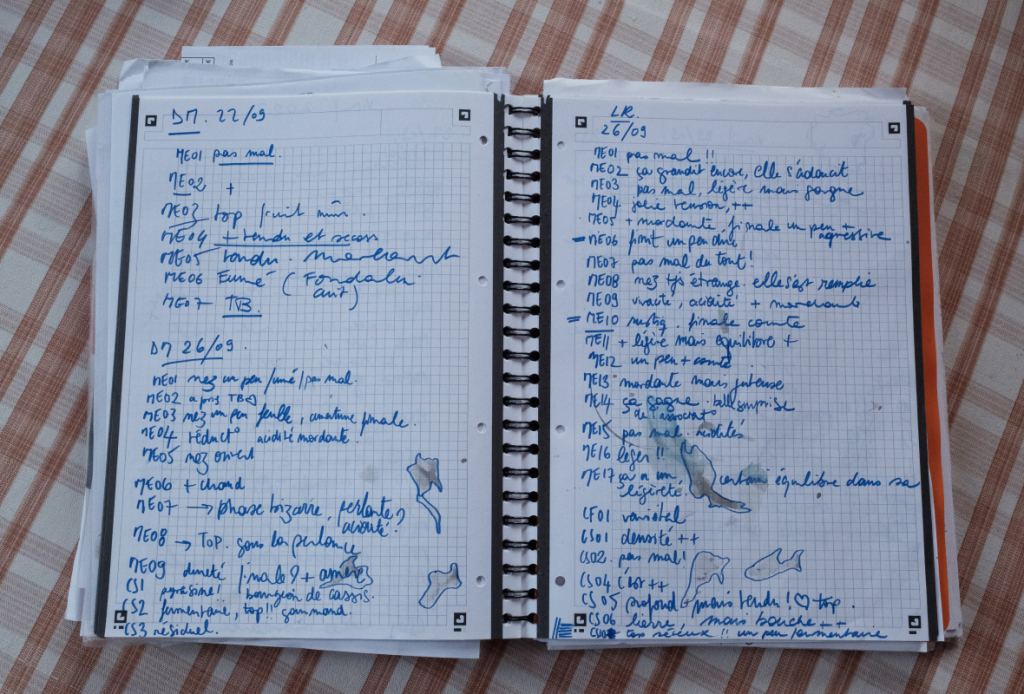 DM. 22/09
ME01 pas mal.
ME02 +
ME03 top fruit mûr.
ME04 + tendu et
ME05 tendu. mordant
ME06 Fumé (
ME07 TB.
DM 26/09.
ME01 nez un peu fumé / pas mal.
ME02 après TB
ME03 nez un peu finale.
ME04 réduct° acidité mordante.
ME05 nez
ME06 + chaud
ME07 → phase bizarre, perlante?
acidité?
ME08 → TOP. sous la perlance
ME09 dureté finale? + amère
CS1 bourgeon de cassis.
CS2 fermentaire, top!! gourmand.
CS3 résiduel.
LR.
26/09
ME01 pas mal !!
ME02 ça grandit encore, elle s'adoucit
ME03 pas mal, légère mais gagne
ME04 jolie tension, ++
ME05 + mordante, finale un peu +
agressive
= ME06 finit un peu dur
ME07 pas mal du tout!
ME08 nez tjs étrange. elle s'est remplie
ME09 vivacité, acidité + mordante
= ME10 finale courte
ME11 + légère mais équilibrée +
ME12 un peu + courte
ME13 mordante mais juteuse
ME14 ça gagne. belle surprise
ME15 pas mal.
ME16 léger !!
ME17 ça a un certain équilibre dans sa
légèreté
CF01 variétal
CS01 densité ++
CS02 pas mal!
CS04 ++
CS05 profond + mais tendu! ♡ top.
CS06 lierre, mais bouche ++
!! un peu fermentaire